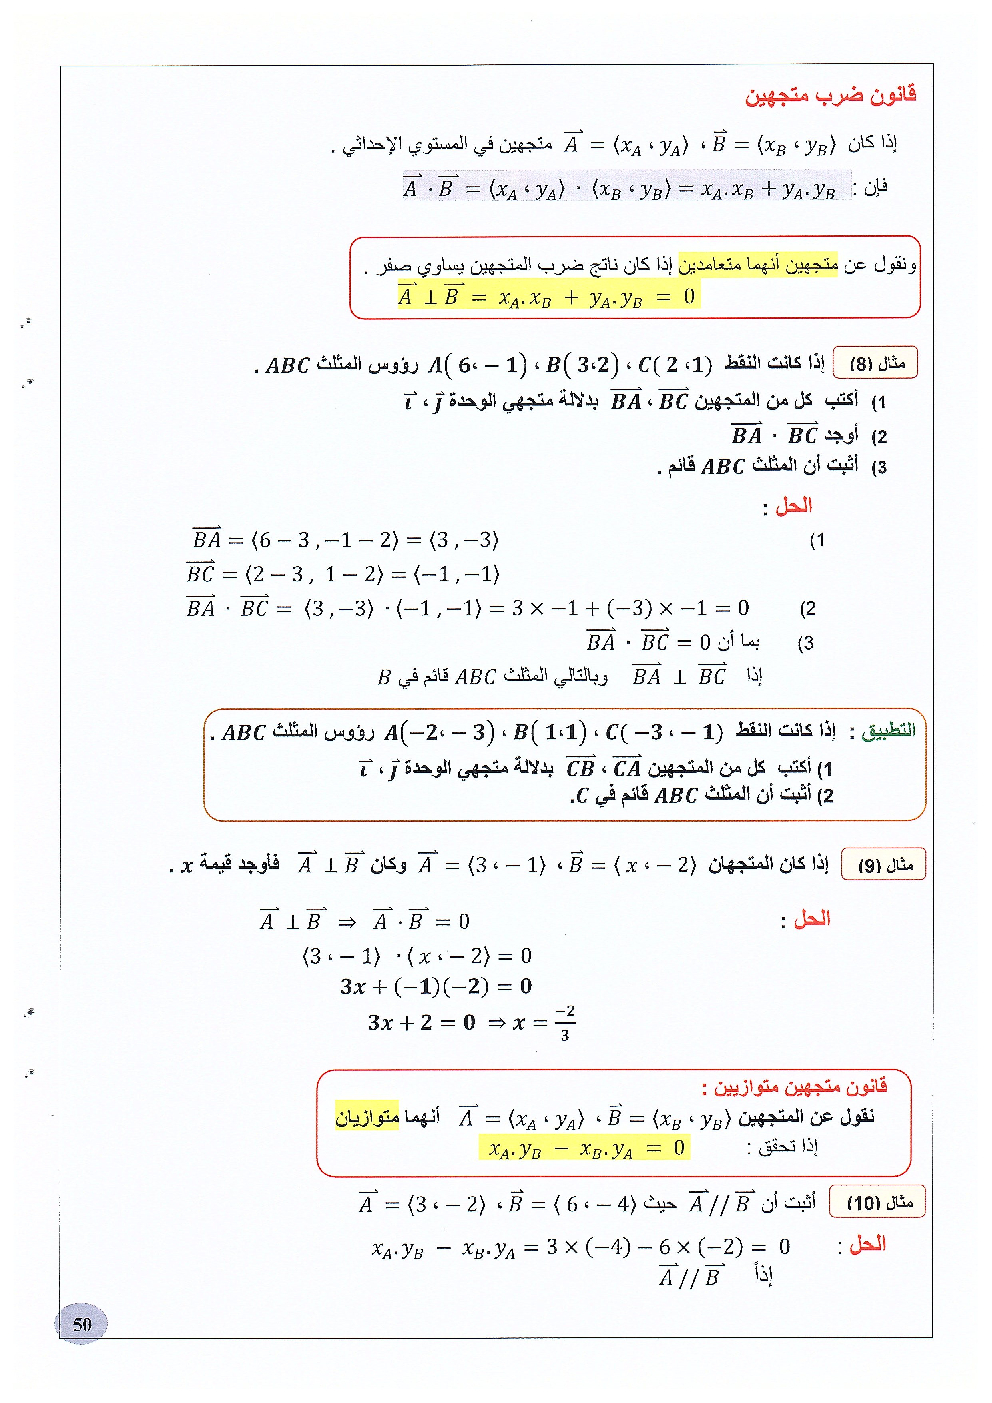 قانون ضرب متجهين
إذا كان $\vec{A} = \langle x_A ، y_A \rangle$ ، $\vec{B} = \langle x_B ، y_B \rangle$ متجهين في المستوي الإحداثي .
فإن : $\vec{A} \cdot \vec{B} = \langle x_A ، y_A \rangle \cdot \langle x_B ، y_B \rangle = x_A . x_B + y_A . y_B$
ونقول عن متجهين أنهما متعامدين إذا كان ناتج ضرب المتجهين يساوي صفر .
$\vec{A} \perp \vec{B} = x_A . x_B + y_A . y_B = 0$
مثال (8) إذا كانت النقط A( 6، − 1) ، B( 3،2) ، C( 2 ،1) رؤوس المثلث ABC .
1) أكتب كل من المتجهين $\overrightarrow{BA}$ ، $\overrightarrow{BC}$ بدلالة متجهي الوحدة $\vec{i}$ ، $\vec{j}$
2) أوجد $\overrightarrow{BA} \cdot \overrightarrow{BC}$
3) أثبت أن المثلث ABC قائم .
الحل :
1) $\overrightarrow{BA} = \langle 6 - 3 , -1 - 2 \rangle = \langle 3 , -3 \rangle$
$\overrightarrow{BC} = \langle 2 - 3 , 1 - 2 \rangle = \langle -1 , -1 \rangle$
2) $\overrightarrow{BA} \cdot \overrightarrow{BC} = \langle 3 , -3 \rangle \cdot \langle -1 , -1 \rangle = 3 \times -1 + (-3) \times -1 = 0$
3) بما أن $\overrightarrow{BA} \cdot \overrightarrow{BC} = 0$
إذا $\overrightarrow{BA} \perp \overrightarrow{BC}$ وبالتالي المثلث ABC قائم في B
التطبيق : إذا كانت النقط A(−2، − 3) ، B( 1،1) ، C( −3 ، − 1) رؤوس المثلث ABC .
1) أكتب كل من المتجهين $\overrightarrow{CB}$ ، $\overrightarrow{CA}$ بدلالة متجهي الوحدة $\vec{i}$ ، $\vec{j}$
2) أثبت أن المثلث ABC قائم في C.
مثال (9) إذا كان المتجهان $\vec{A} = \langle 3 ، -1 \rangle$ ، $\vec{B} = \langle x ، -2 \rangle$ وكان $\vec{A} \perp \vec{B}$ فأوجد قيمة x .
الحل : $\vec{A} \perp \vec{B} \Rightarrow \vec{A} \cdot \vec{B} = 0$
$\langle 3 ، -1 \rangle \cdot \langle x ، -2 \rangle = 0$
$3x + (-1)(-2) = 0$
$3x + 2 = 0 \Rightarrow x = \frac{-2}{3}$
قانون متجهين متوازيين :
نقول عن المتجهين $\vec{A} = \langle x_A ، y_A \rangle$ ، $\vec{B} = \langle x_B ، y_B \rangle$ أنهما متوازيان
إذا تحقق : $x_A . y_B - x_B . y_A = 0$
مثال (10) أثبت أن $\vec{A} // \vec{B}$ حيث $\vec{A} = \langle 3 ، -2 \rangle$ ، $\vec{B} = \langle 6 ، -4 \rangle$
الحل : $x_A . y_B - x_B . y_A = 3 \times (-4) - 6 \times (-2) = 0$
إذاً $\vec{A} // \vec{B}$
50